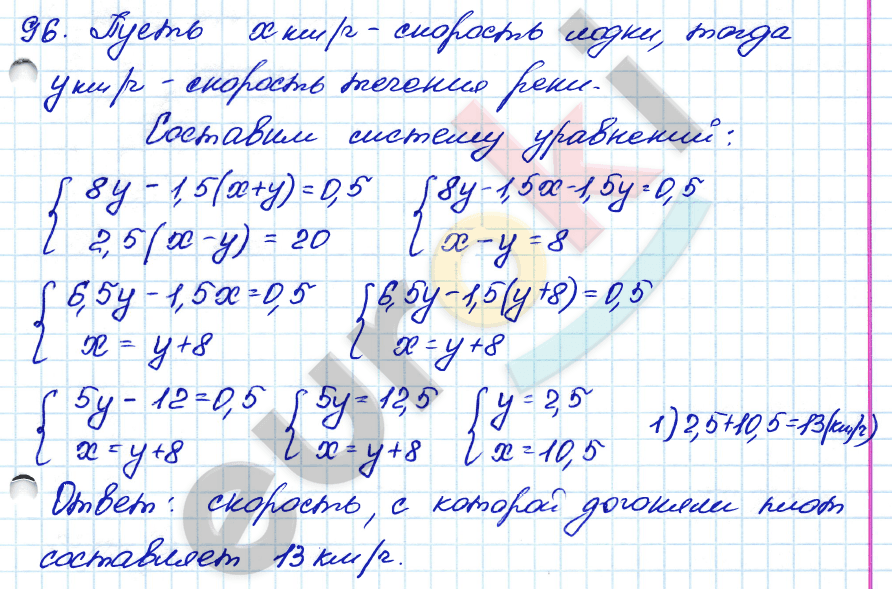 96. Пусть x км/ч - скорость лодки, тогда
y км/ч - скорость течения реки.
Составим систему уравнений:
8y - 1,5(x+y) = 0,5 8y - 1,5x - 1,5y = 0,5
2,5(x-y) = 20 x - y = 8
6,5y - 1,5x = 0,5 6,5y - 1,5(y+8) = 0,5
x = y+8 x = y+8
5y - 12 = 0,5 5y = 12,5 y = 2,5 1) 2,5+10,5=13(км/ч)
x = y+8 x = y+8 x = 10,5
Ответ: скорость, с которой догоняли плот
составляет 13 км/ч.
euroki